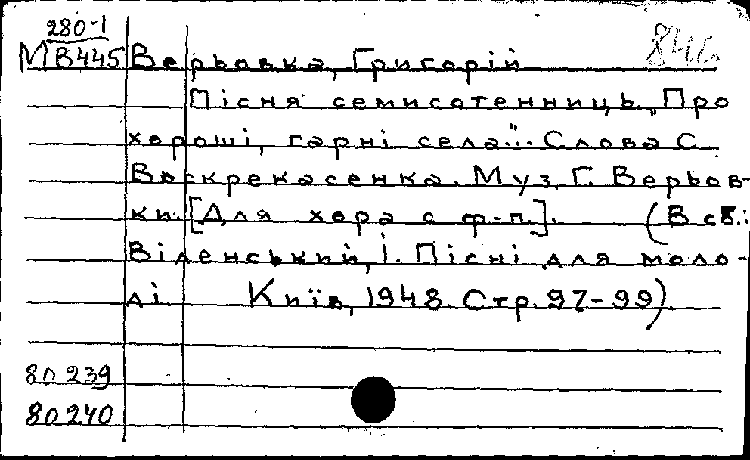 280-1
МВ445 Верьовка, Григорій 846
Пісня семисотенниць "Про
хороші, гарні села"... Слова С.
Воскрекасенка. Муз. Г. Верьов-
ки. [Для хора с ф-п.]. (В сб.:
Віденський, І. Пісні для моло-
ді. Київ, 1948. Стр. 97-99).
80 239
80 240